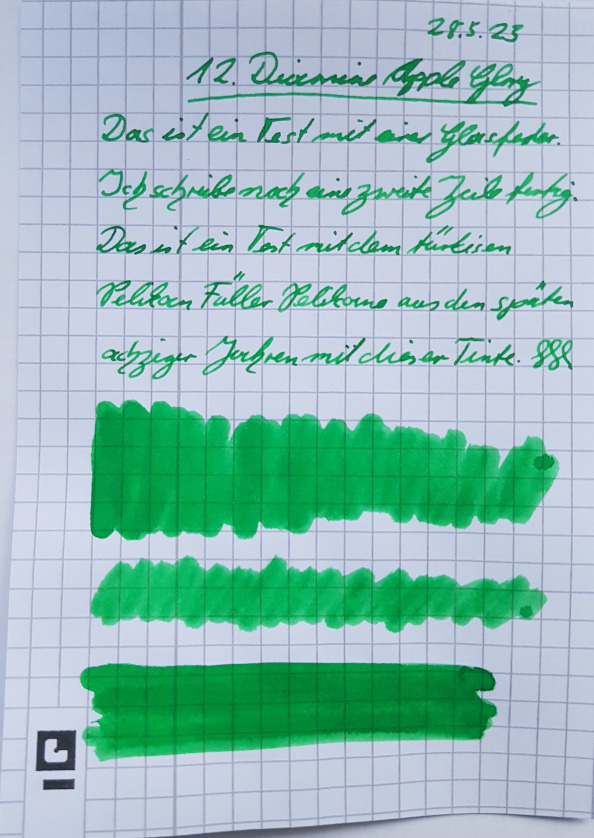 28.5.23
12. Diamine Apple Glory
Das ist ein Test mit einer Glasfeder.
Ich schreibe noch eine zweite Zeile fertig.
Das ist ein Test mit dem türkisen
Pelikan Füller Pelikano aus den späten
achziger Jahren mit dieser Tinte. §§§